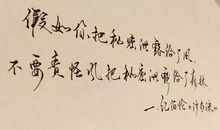 假如你把秘密泄露给了风
不要责怪风把秘密泄露给了森林
—纪伯伦《沙与沫》